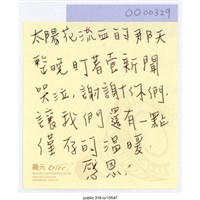 0000329
太陽花流血的那天
整晚盯著壹新聞
哭泣,謝謝你們.
讓我們還有一點
僅存的溫暖.
感恩!
public.318.io/10547